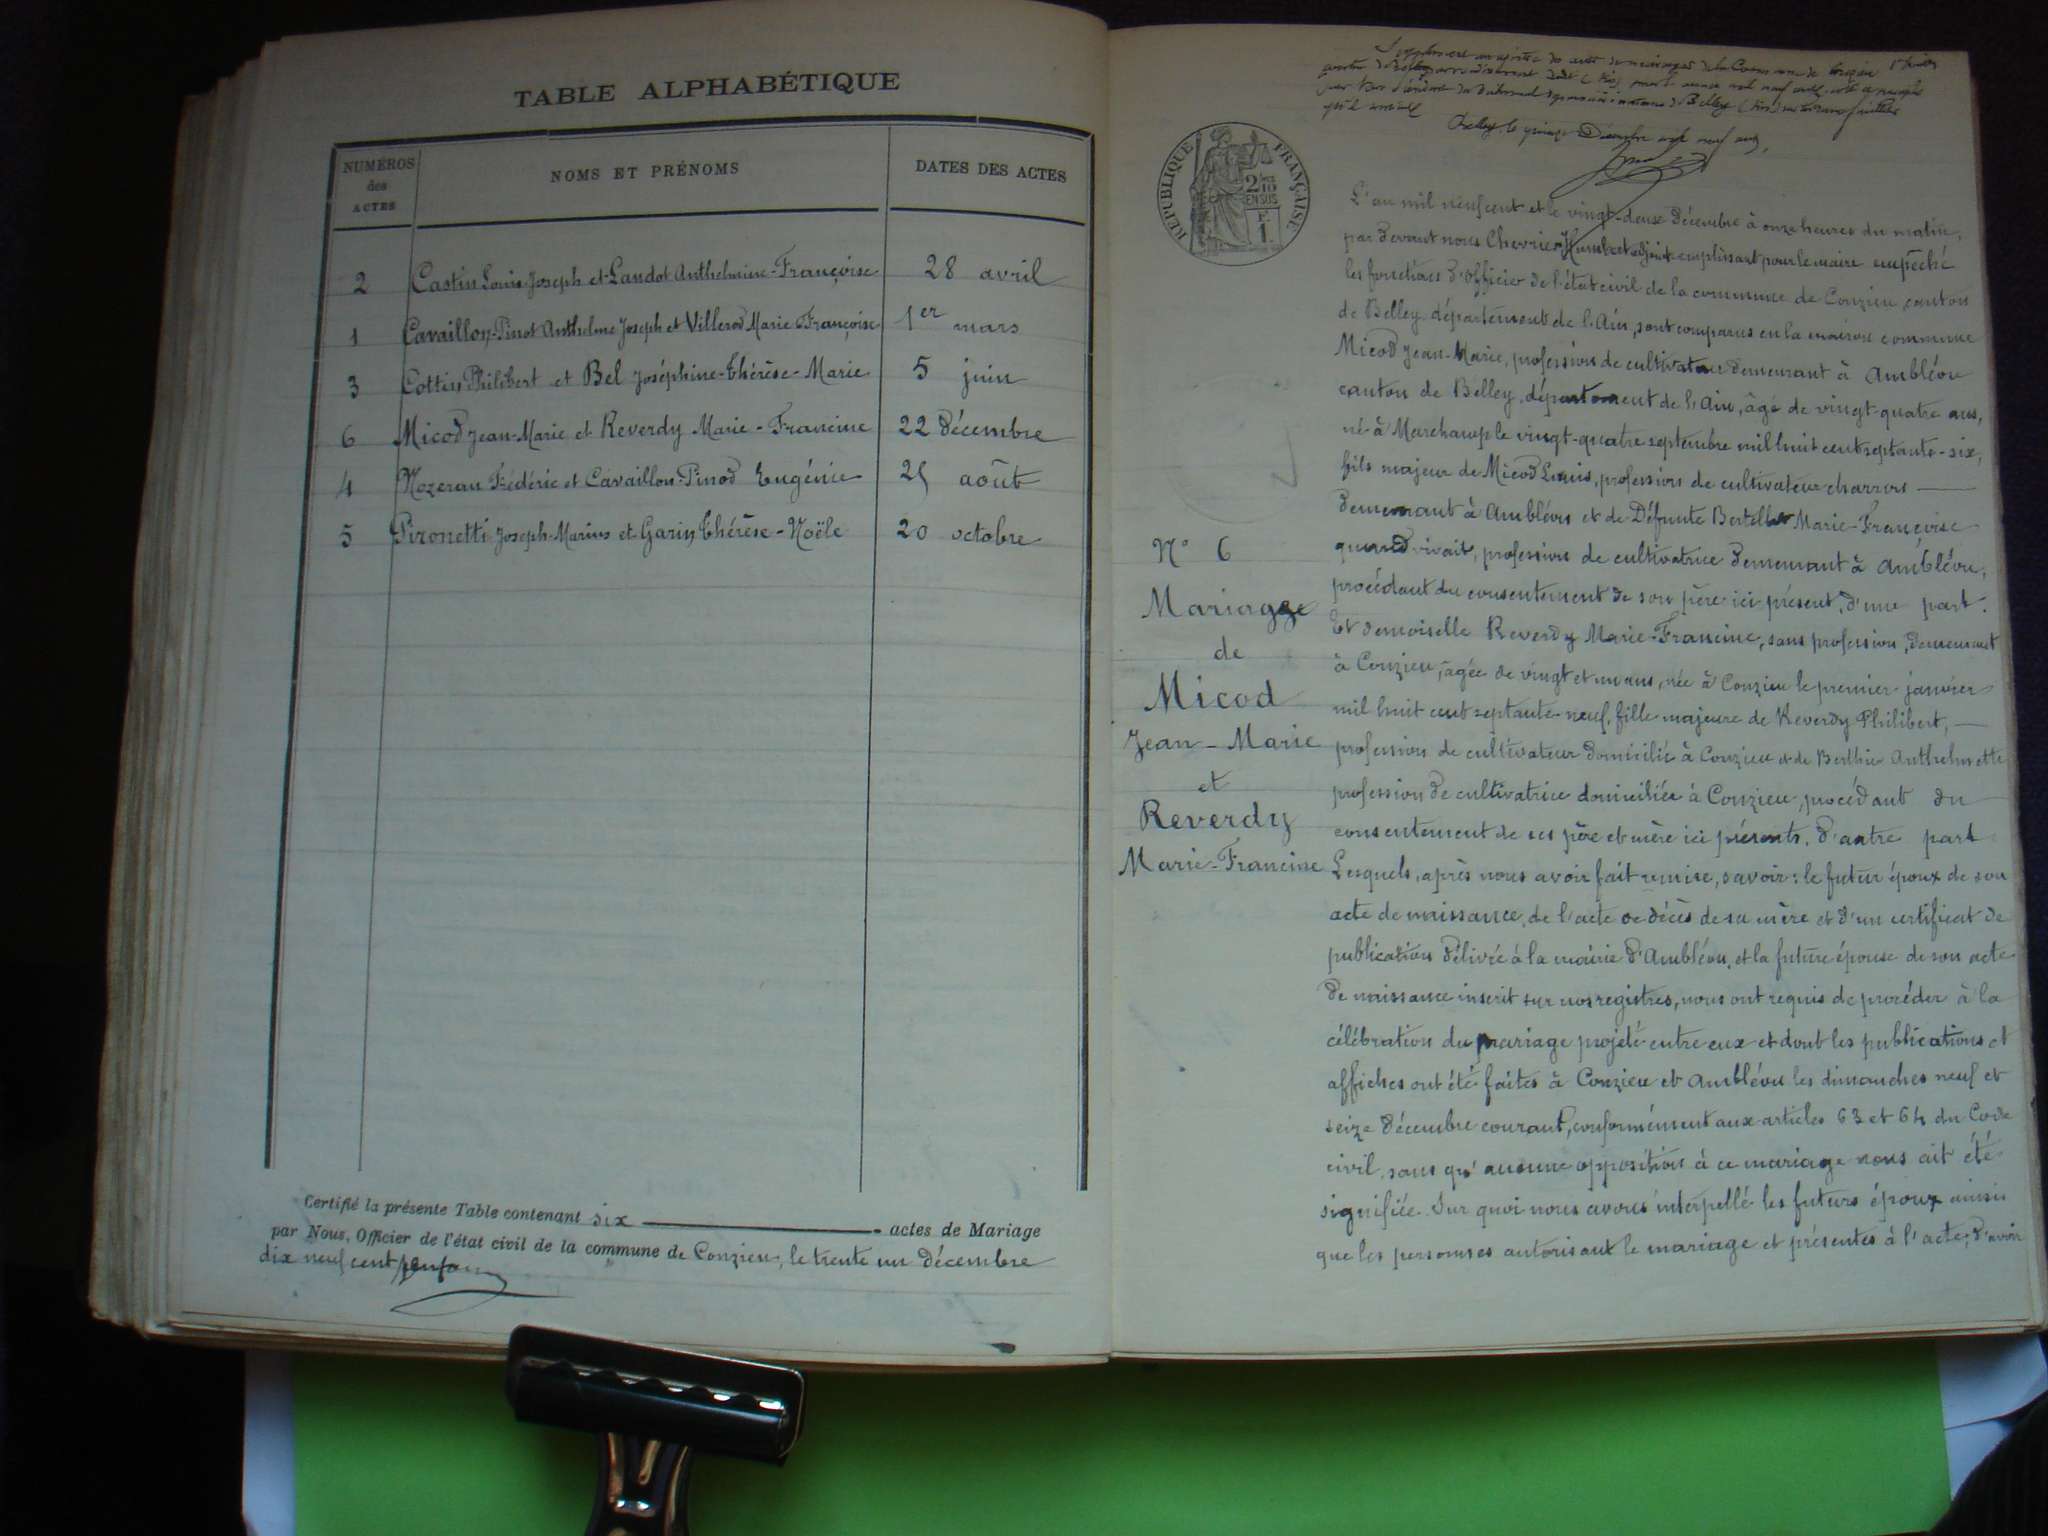 TABLE ALPHABÉTIQUE
NUMÉROS des ACTES
NOMS ET PRÉNOMS
DATES DES ACTES
2 Castin Louis-Joseph et Landot Anthelmine-Françoise 28 avril
1 Cavaillon-Pinot Anthelme Joseph et Villerod Marie Françoise 1er mars
3 Cottin Philibert et Bel Joséphine-Thérèse-Marie 5 juin
6 Micod Jean-Marie et Reverdy Marie-Francine 22 décembre
4 Nozeran Frédéric et Cavaillon-Pinod Eugénie 25 août
5 Pironetti Joseph-Marius et Garin Thérèse-Noële 20 octobre
Certifié la présente Table contenant six actes de Mariage
par Nous, Officier de l'état civil de la commune de Conzieu, le trente un décembre
dix neuf cent
Belley, le quinze Décembre mil neuf cent
RÉPUBLIQUE FRANÇAISE
2/10
EN SUS
F.
1.
N° 6
Mariage
de
Micod
Jean-Marie
et
Reverdy
Marie-Francine
L'an mil neuf cent et le vingt-deux Décembre à onze heures du matin,
par devant nous Chevrier Humbert adjoint remplissant pour le maire empêché
les fonctions d'officier de l'état civil de la commune de Conzieu, canton
de Belley département de l'Ain, sont comparus en la maison commune
Micod Jean-Marie, profession de cultivateur demeurant à Ambléon
canton de Belley, département de l'Ain, âgé de vingt-quatre ans,
né à Marchamp le vingt-quatre septembre mil huit cent septante-six,
fils majeur de Micod Louis, profession de cultivateur charron
demeurant à Ambléon et de Défunte Bertellet Marie-Françoise
quand vivait, profession de cultivatrice demeurant à Ambléon,
procédant du consentement de son père ici présent, d'une part.
Et demoiselle Reverdy Marie-Francine, sans profession, demeurant
à Conzieu, âgée de vingt et un ans, née à Conzieu le premier janvier
mil huit cent septante-neuf, fille majeure de Reverdy Philibert,
profession de cultivateur domicilié à Conzieu et de Berthier Anthelmette
profession de cultivatrice domiciliée à Conzieu, procédant du
consentement de ses père et mère ici présents, d'autre part
Lesquels, après nous avoir fait remise, savoir: le futur époux de son
acte de naissance, de l'acte de décès de sa mère et d'un certificat de
publication délivré à la mairie d'Ambléon, et la future épouse de son acte
de naissance inscrit sur nos registres, nous ont requis de procéder à la
célébration du mariage projeté entre eux et dont les publications et
affiches ont été faites à Conzieu et Ambléon les dimanches neuf et
seize décembre courant, conformément aux articles 63 et 64 du Code
civil, sans qu'aucune opposition à ce mariage nous ait été
signifiée. Sur quoi nous avons interpellé les futurs époux ainsi
que les personnes autorisant le mariage et présentes à l'acte, d'avoir